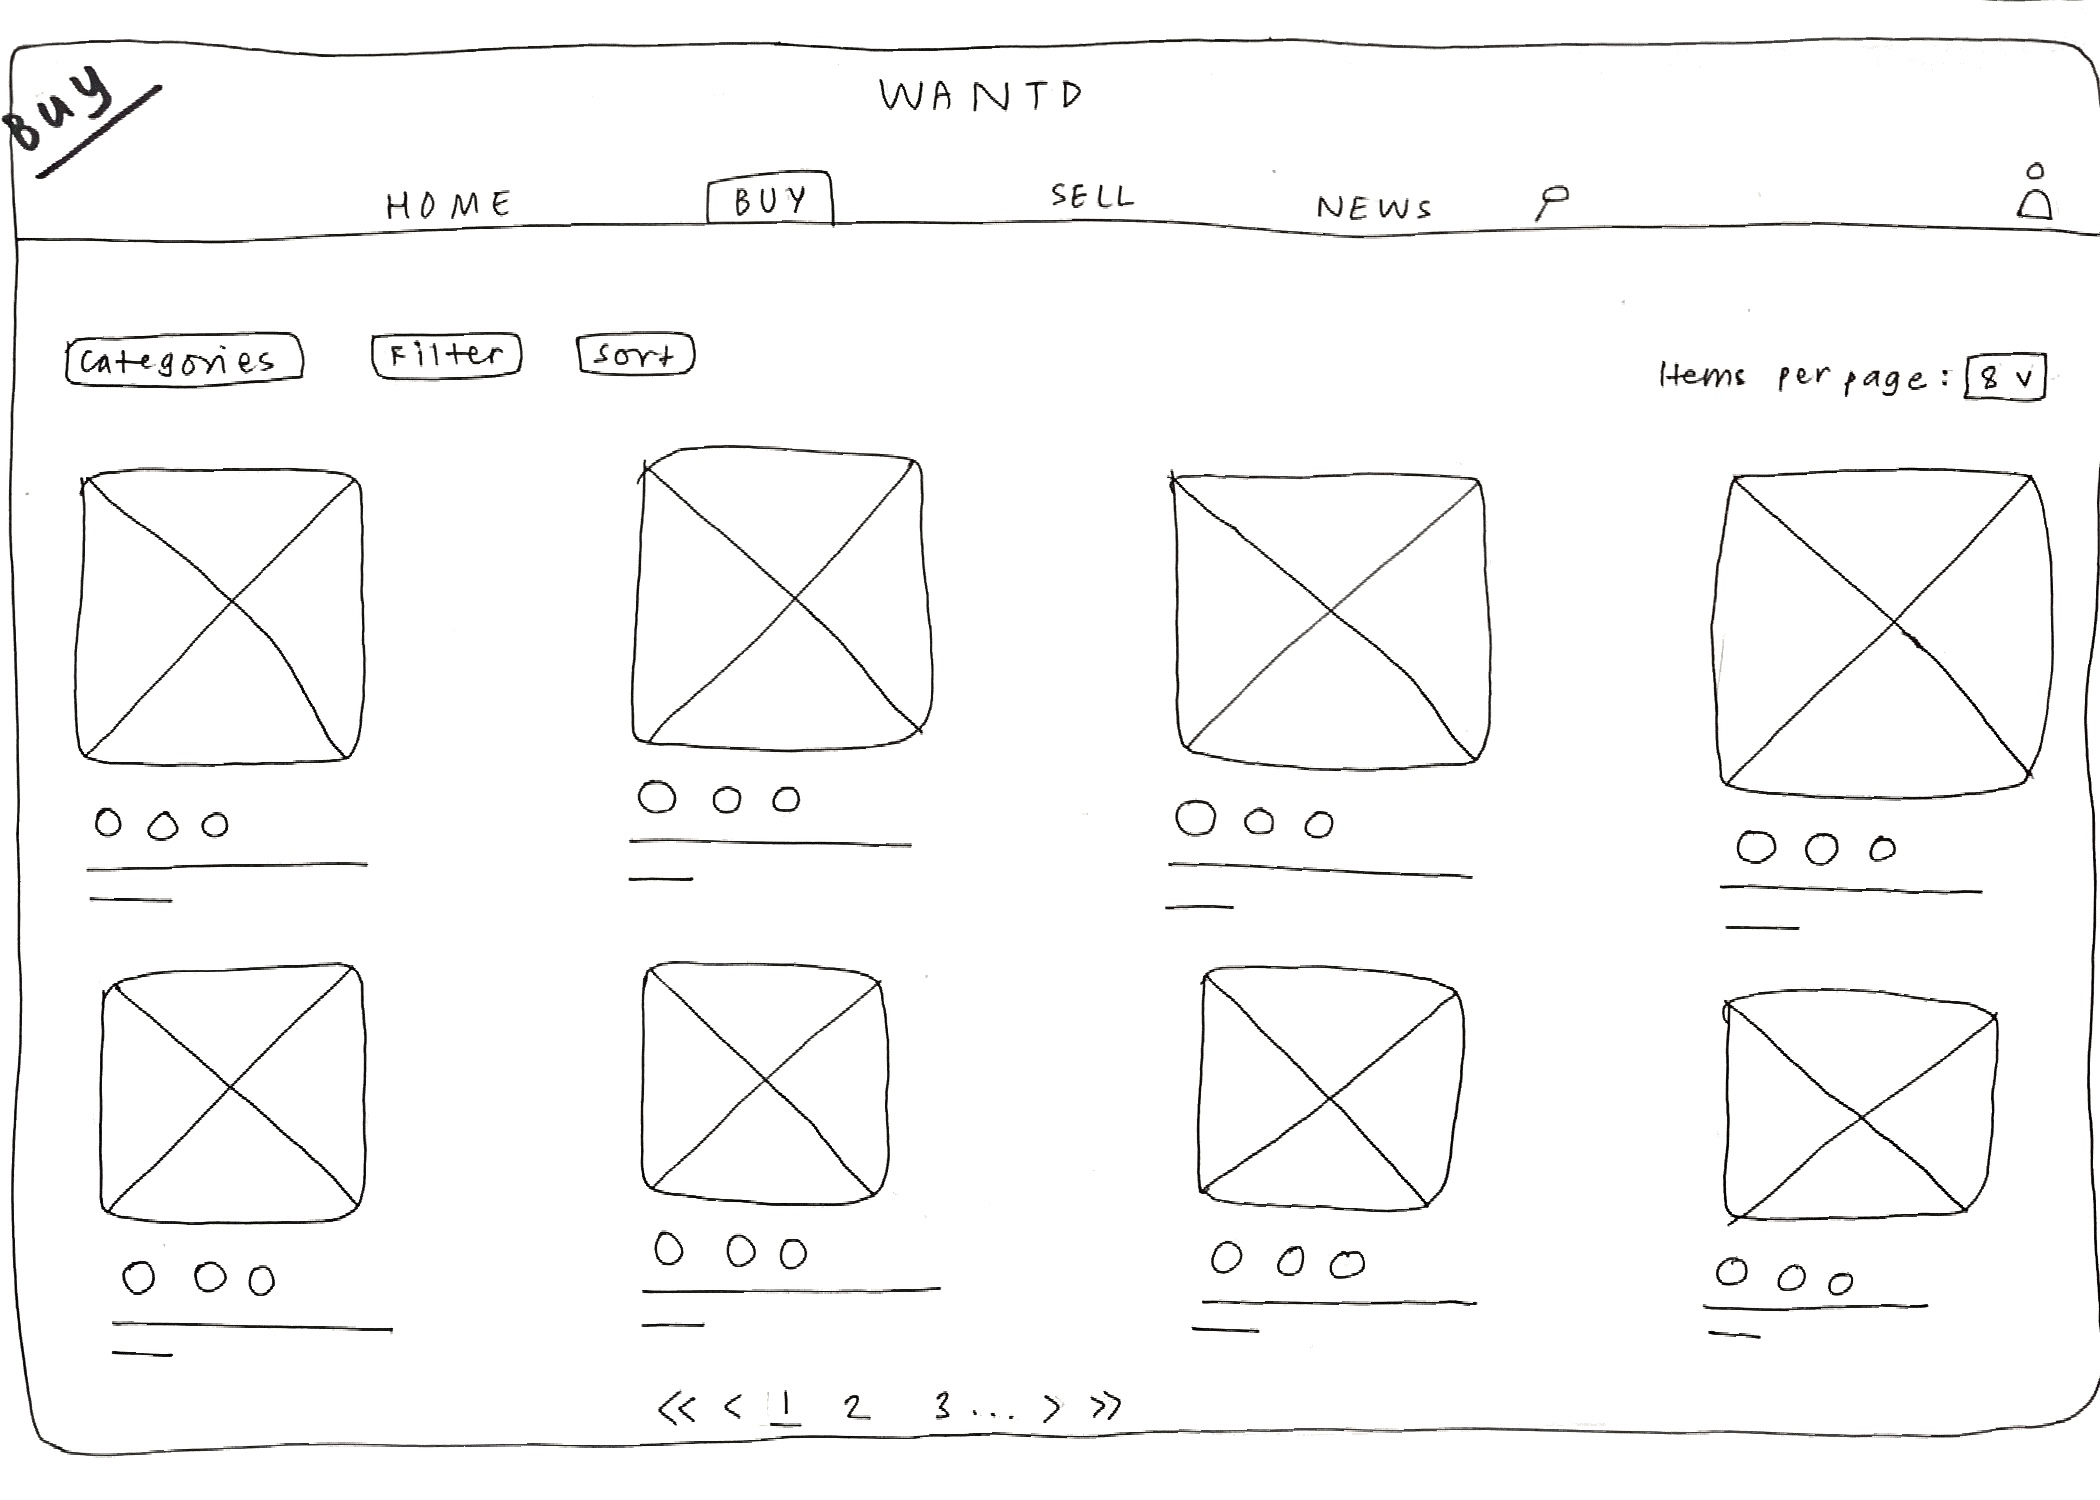 BUY
WANTD
HOME BUY SELL NEWS
Categories Filter Sort
Items per page: 8 v
<< < 1 2 3... > >>